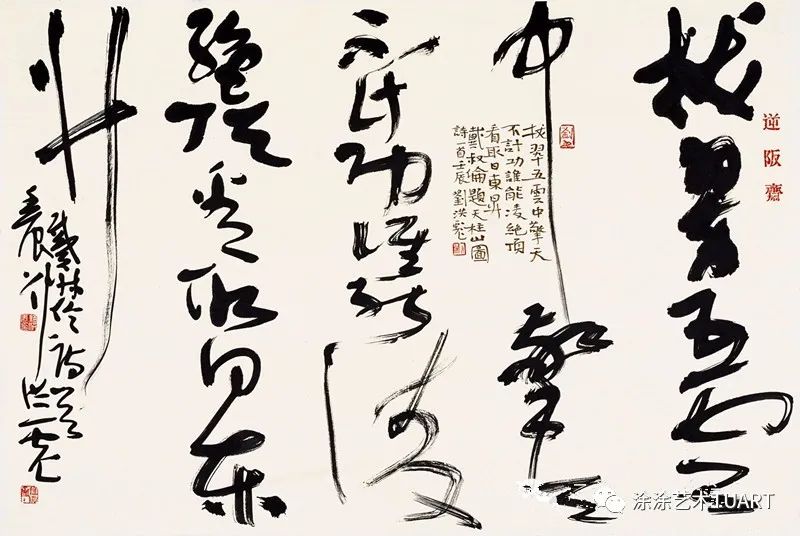 逆阪齋
拔翠五云
中擎天
拔翠五雲中擎天
不計功誰能凌絕頂
看取日東昇
戴叔倫題天柱山圖
詩一首壬辰劉洪彪
不計功誰能凌
絕頂看取日東
升
戴叔倫詩
洪彪
涂涂艺术TUART